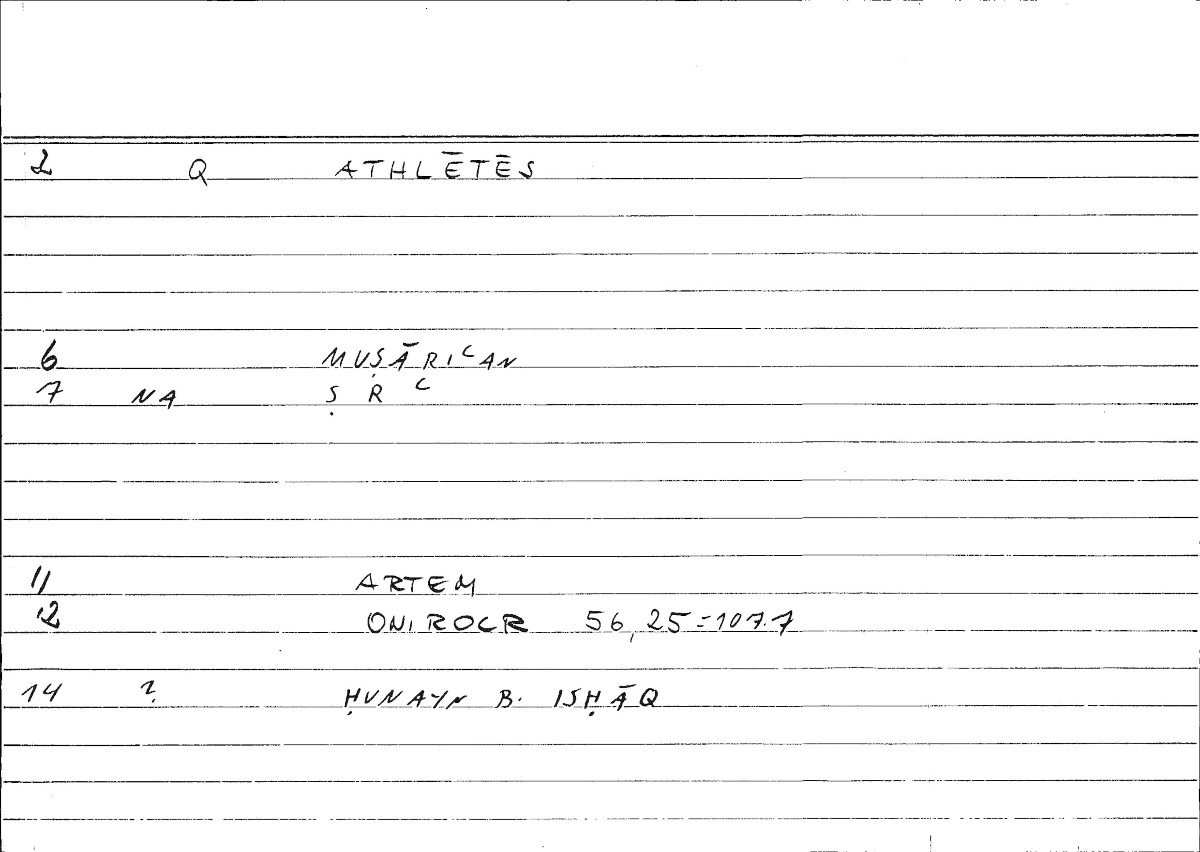 2 Q ATHLĒTĒS
6 MUṢĀRIᶜAN
7 NA Ṣ R ᶜ
11 ARTEM
12 ONIROCR 56,25=107.7
14 ? ḤUNAYN B. ISḤĀQ